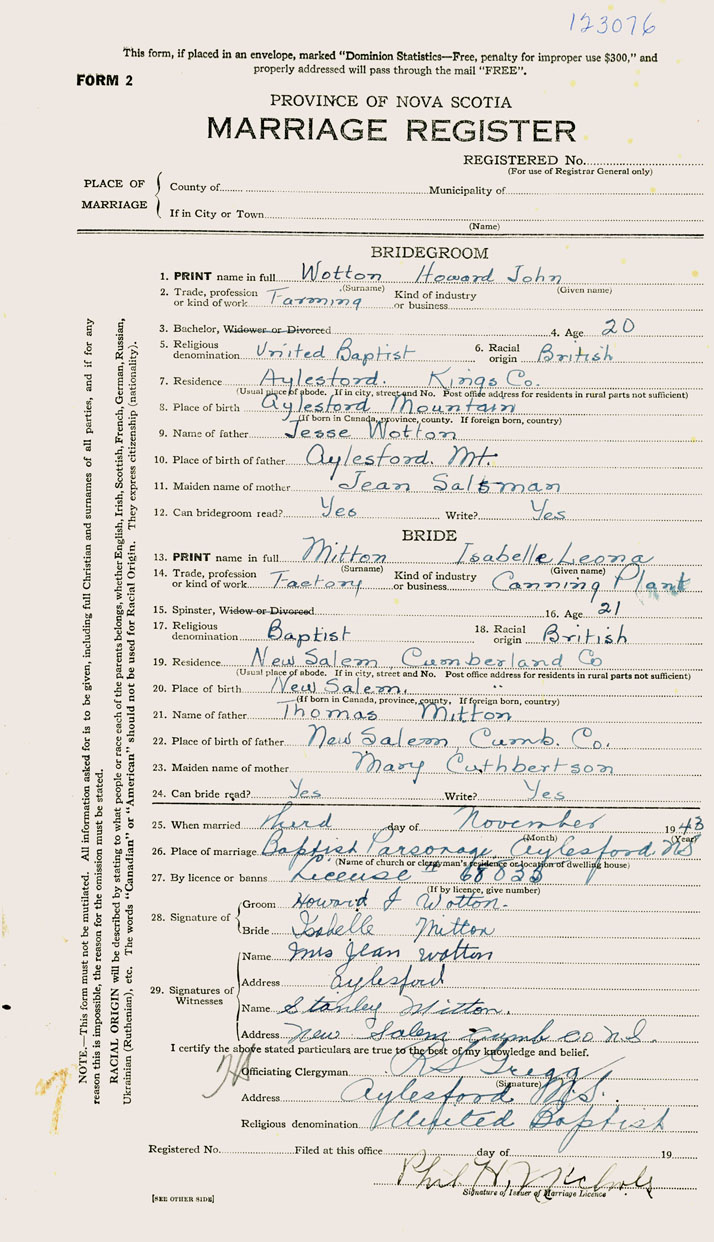 123076
This form, if placed in an envelope, marked "Dominion Statistics—Free, penalty for improper use $300," and
properly addressed will pass through the mail "FREE".
FORM 2
PROVINCE OF NOVA SCOTIA
MARRIAGE REGISTER
REGISTERED No.
(For use of Registrar General only)
PLACE OF MARRIAGE
County of Municipality of
If in City or Town
(Name)
BRIDEGROOM
1. PRINT name in full Wotton Howard John
(Surname) (Given name)
2. Trade, profession or kind of work Farming Kind of industry or business
3. Bachelor, Widower or Divorced 4. Age 20
5. Religious denomination United Baptist 6. Racial origin British
7. Residence Aylesford. Kings Co.
(Usual place of abode. If in city, street and No. Post office address for residents in rural parts not sufficient)
8. Place of birth Aylesford Mountain
(If born in Canada, province, county. If foreign born, country)
9. Name of father Jesse Wotton
10. Place of birth of father Aylesford. Mt.
11. Maiden name of mother Jean Salsman
12. Can bridegroom read? Yes Write? Yes
BRIDE
13. PRINT name in full Mitton Isabelle Leona
(Surname) (Given name)
14. Trade, profession or kind of work Factory Kind of industry or business Canning Plant
15. Spinster, Widow or Divorced 16. Age 21
17. Religious denomination Baptist 18. Racial origin British
19. Residence New Salem Cumberland Co
(Usual place of abode. If in city, street and No. Post office address for residents in rural parts not sufficient)
20. Place of birth New Salem. "
(If born in Canada, province, county. If foreign born, country)
21. Name of father Thomas Mitton
22. Place of birth of father New Salem Cumb. Co.
23. Maiden name of mother Mary Cuthbertson
24. Can bride read? Yes Write? Yes
25. When married third day of November 1943
(Month) (Year)
26. Place of marriage Baptist Parsonage, Aylesford NS
(Name of church or clergyman's residence or location of dwelling house)
27. By licence or banns License # 68033
(If by licence, give number)
28. Signature of
Groom Howard J Wotton.
Bride Isabelle Mitton
29. Signatures of Witnesses
Name Mrs Jean Wotton
Address Aylesford
Name Stanley Mitton.
Address New Salem Cumb Co N.S.
I certify the above stated particulars are true to the best of my knowledge and belief.
Officiating Clergyman R S Gregg
(Signature)
Address Aylesford N.S.
Religious denomination United Baptist
Registered No. Filed at this office day of 19
Phil H. Nichols
Signature of Issuer of Marriage Licence
[SEE OTHER SIDE]
NOTE.—This form must not be mutilated. All information asked for is to be given, including full Christian and surnames of all parties, and if for any
reason this is impossible, the reason for the omission must be stated.
RACIAL ORIGIN will be described by stating to what people or race each of the parents belongs, whether English, Irish, Scottish, French, German, Russian,
Ukrainian (Ruthenian), etc. The words "Canadian" or "American" should not be used for Racial Origin. They express citizenship (nationality).